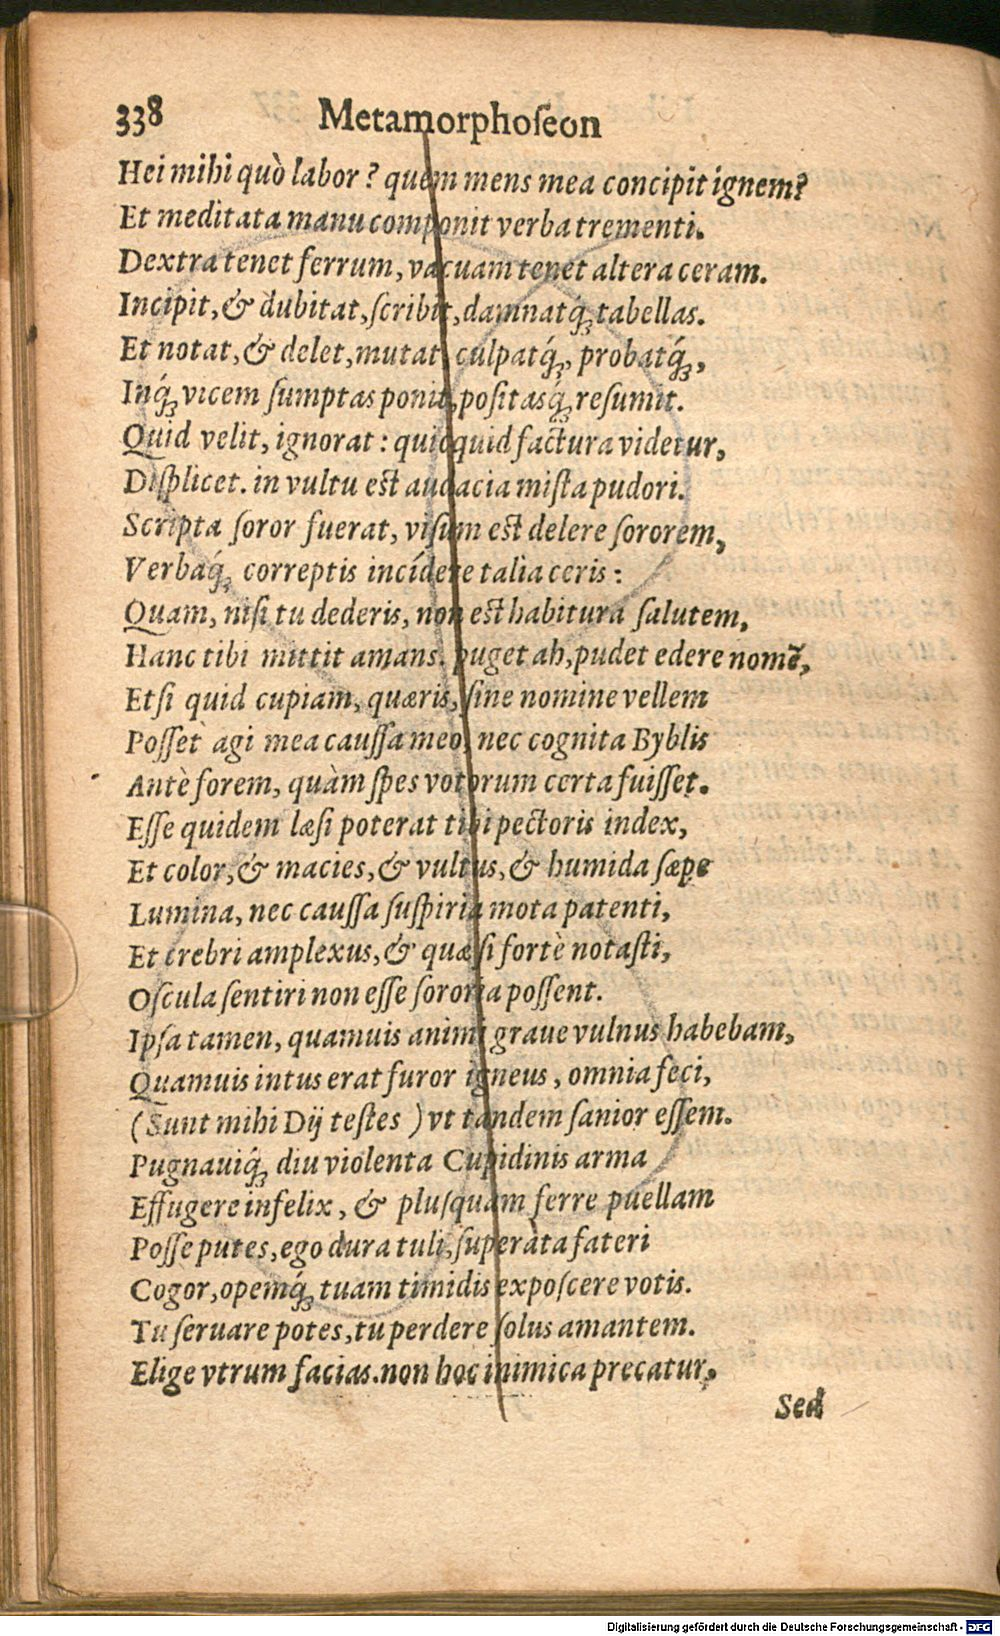 338 Metamorphoſeon
Hei mihi quò labor? quem mens mea concipit ignem?
Et meditata manu componit verba trementi.
Dextra tenet ferrum, vacuam tenet altera ceram.
Incipit, & dubitat, ſcribit, damnatq́ꝫ tabellas.
Et notat, & delet, mutat, culpatq́ꝫ, probatq́ꝫ,
Inq́ꝫ vicem ſumptas ponit, poſitasq́ꝫ reſumit.
Quid velit, ignorat: quicquid factura videtur,
Diſplicet. in vultu eſt audacia miſta pudori.
Scripta ſoror fuerat, viſum eſt delere ſororem,
Verbaq́ꝫ correptis incídere talia ceris:
Quam, niſi tu dederis, non eſt habitura ſalutem,
Hanc tibi mittit amans. puget ah, pudet edere nomẽ,
Etſi quid cupiam, quæris, ſine nomine vellem
Poſſet agi mea cauſſa meo, nec cognita Byblis
Antè forem, quàm ſpes votorum certa fuiſſet.
Eſſe quidem læſi poterat tibi pectoris index,
Et color, & macies, & vultus, & humida ſæpe
Lumina, nec cauſſa ſuſpiria mota patenti,
Et crebri amplexus, & quæ ſi fortè notaſti,
Oſcula ſentiri non eſſe ſororia poſſent.
Ipſa tamen, quamuis animi graue vulnus habebam,
Quamuis intus erat furor igneus, omnia feci,
(Sunt mihi Dij teſtes) vt tandem ſanior eſſem.
Pugnauiq́ꝫ diu violenta Cupidinis arma
Effugere infelix, & pluſquam ferre puellam
Poſſe putes, ego dura tuli, ſuperàta fateri
Cogor, opemq́ꝫ tuam timidis expoſcere votis.
Tu ſeruare potes, tu perdere ſolus amantem.
Elige vtrum facias. non hoc inimica precatur,
Sed
Digitalisierung gefördert durch die Deutsche Forschungsgemeinschaft - DFG